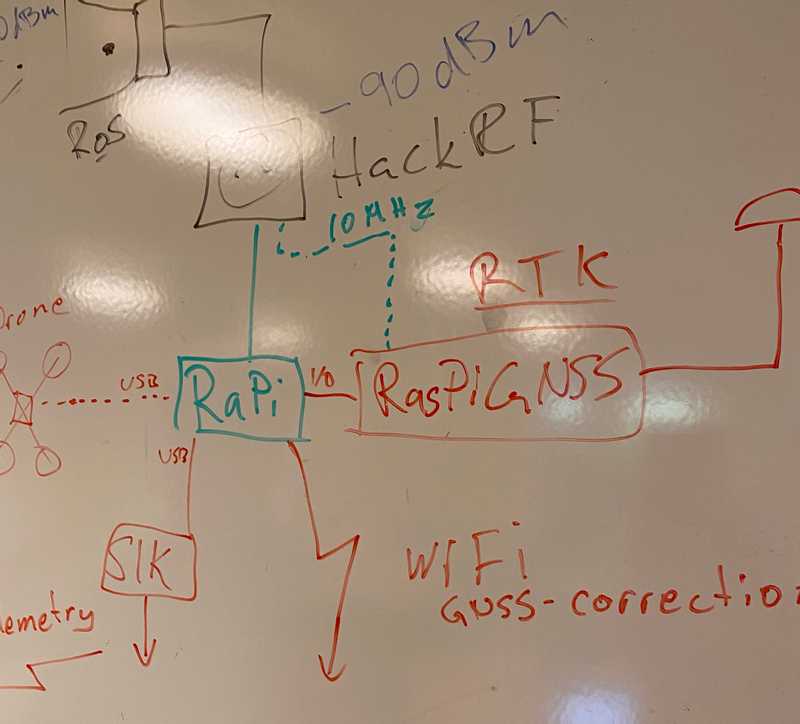 0dBm
-90dBm
RoS
HackRF
10MHz
RTK
Drone
USB
RaPi
I/O
RasPiGNSS
USB
SIK
WiFi
GNSS-correction
lemetry